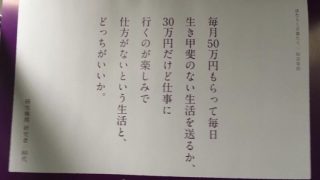 毎月50万円もらって毎日
生き甲斐のない生活を送るか、
30万円だけど仕事に
行くのが楽しみで
仕方がないという生活と、
どっちがいいか。